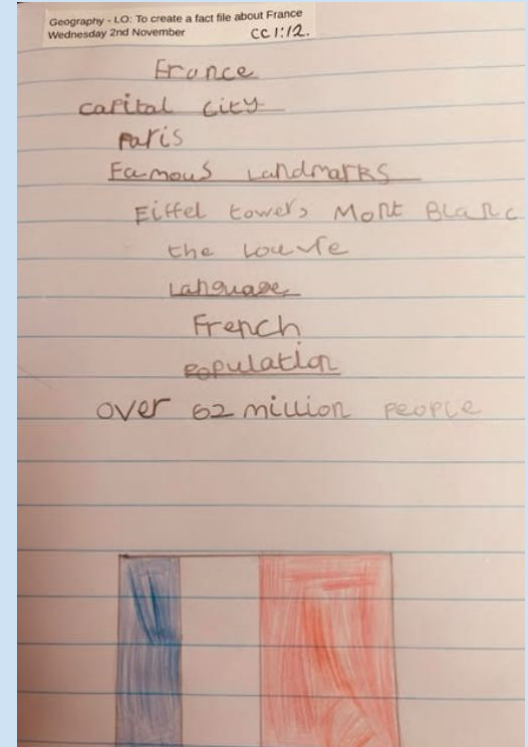 Geography - LO: To create a fact file about France
Wednesday 2nd November CC 1:12.
France
capital city
Paris
Famous Landmarks
Eiffel tower, Mont Blanc
the Louvre
Language
French
population
over 62 million people